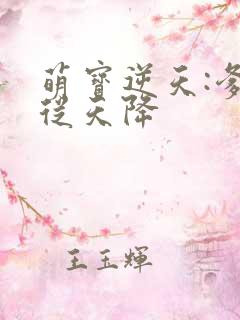 萌寶逆天:爹
從天降
王玉輝